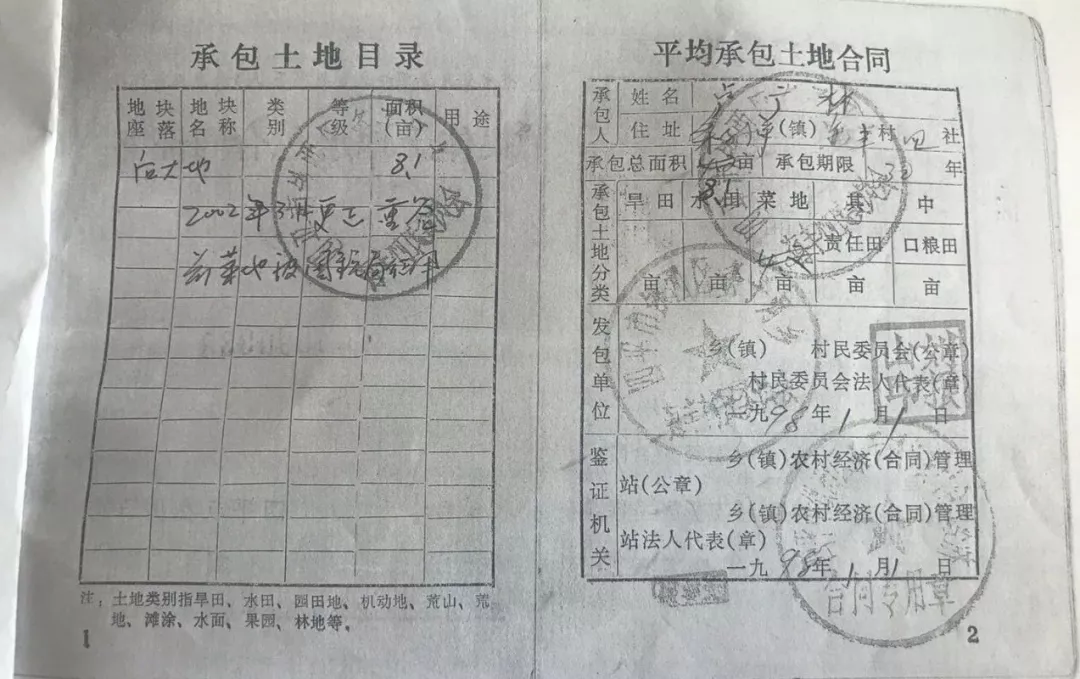 承包土地目录
地块座落 地块名称 类别 等级 面积(亩) 用途
后大地 8.1
2002年 更正 重签
前菜地被
注：土地类别指旱田、水田、园田地、机动地、荒山、荒
地、滩涂、水面、果园、林地等。
1
平均承包土地合同
承包人 姓名 卢 林
住址 (镇) 村 四 社
承包总面积 亩 承包期限 30 年
8.1
承包土地分类 旱田 水田 菜地 其 中
责任田 口粮田
亩 亩 亩 亩 亩
发包单位 乡(镇) 村民委员会(公章)
村民委员会法人代表(章)
一九98年1月1日
鉴证机关 乡(镇)农村经济(合同)管理
站(公章)
乡(镇)农村经济(合同)管理
站法人代表(章)
一九98年1月1日
合同专用章
2